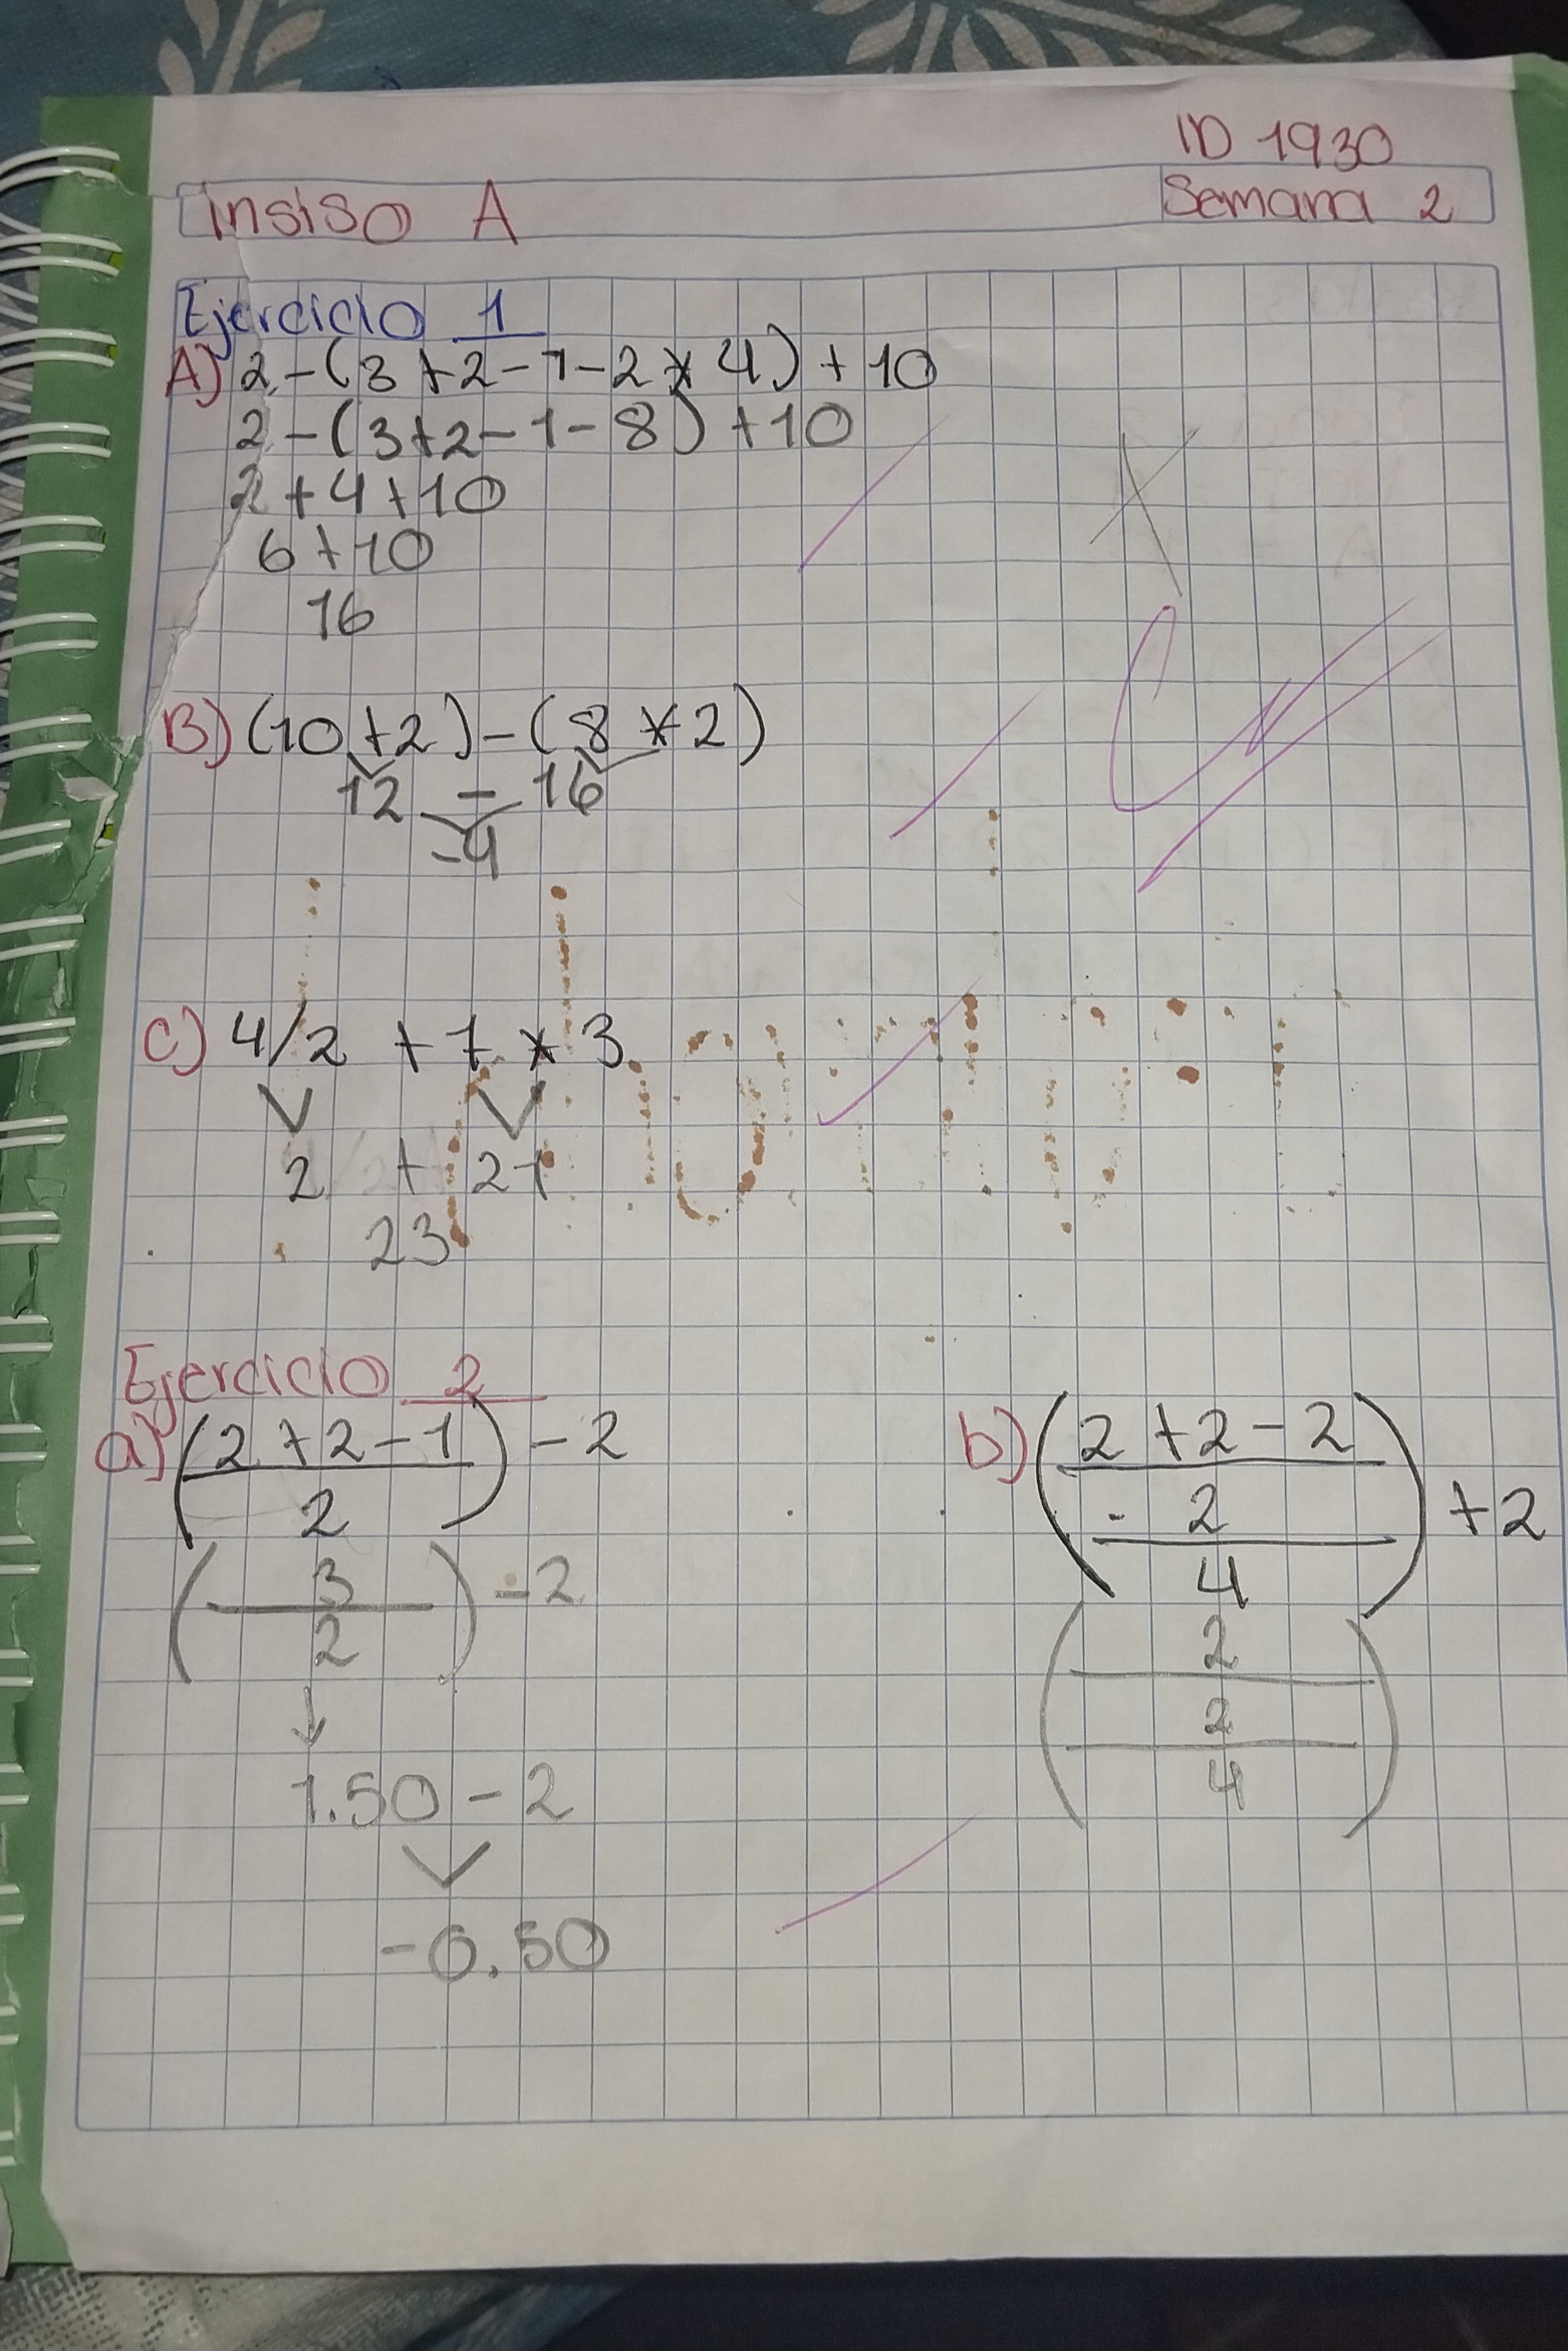 ID 1930
insiso A
Semana 2
Ejercicio 1
A) 2-(3+2-1-2*4)+10
2-(3+2-1-8)+10
2+4+10
6+10
16
B) (10+2)-(8*2)
12 - 16
-4
C) 4/2 + 7 * 3
2 + 21
23
Ejercicio 2
a) (2+2-1) - 2
2
( 3 ) -2
2
↓
1.50 - 2
-0.50
b) (2+2-2)
- 2
4
+2
( 2 )
2
4